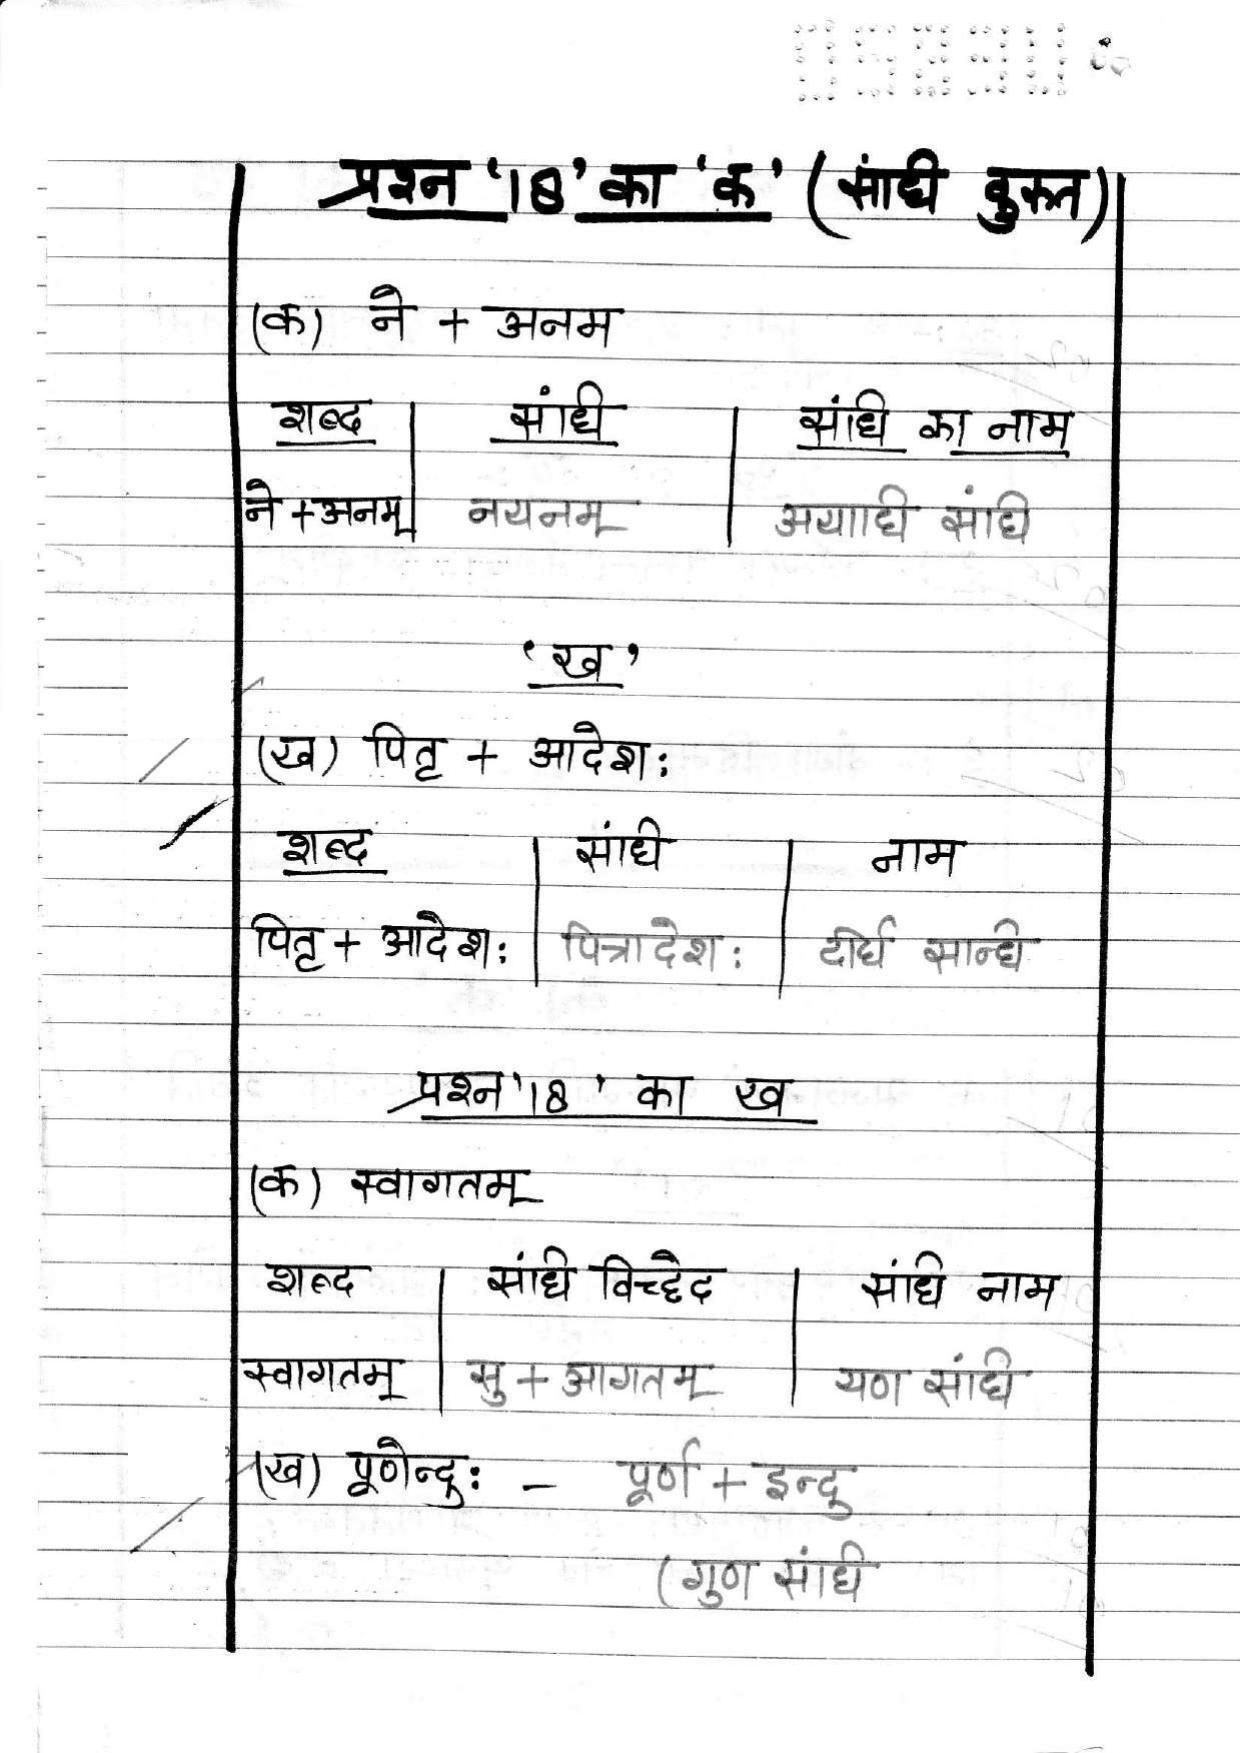 प्रश्न '18' का 'क' (संधि युक्त)
(क) ने + अनम
शब्द | संधि | संधि का नाम
ने + अनम् | नयनम् | अयादि संधि
'ख'
(ख) पितृ + आदेश:
शब्द | संधि | नाम
पितृ + आदेश: | पित्रादेश: | दीर्घ सन्धि
प्रश्न '18' का ख
(क) स्वागतम्
शब्द | संधि विच्छेद | संधि नाम
स्वागतम् | सु + आगतम् | यण संधि
(ख) पूर्णेन्दु: – पूर्ण + इन्दु
(गुण संधि